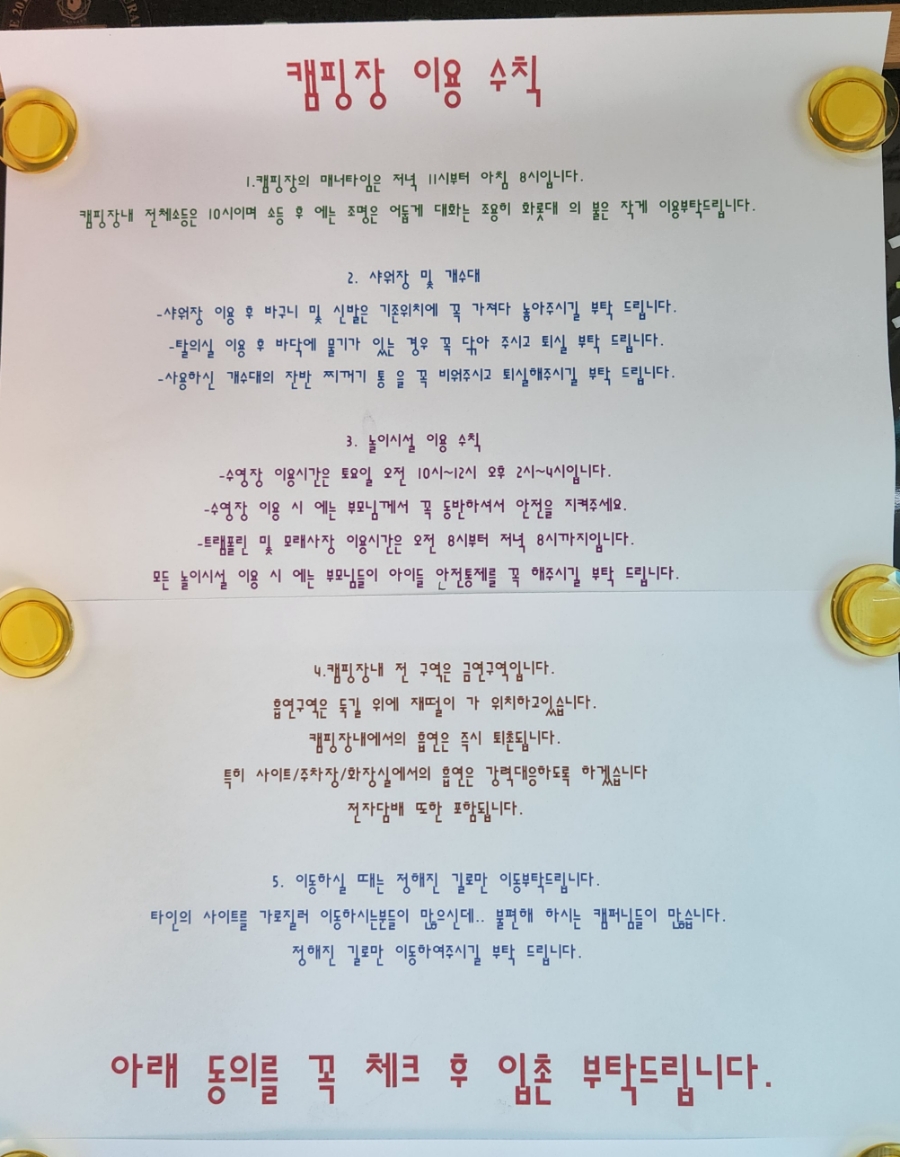 캠핑장 이용 수칙
1.캠핑장의 매너타임은 저녁 11시부터 아침 8시입니다.
캠핑장내 전체소등은 10시이며 소등 후 에는 조명은 어둡게 대화는 조용히 화롯대 의 불은 작게 이용부탁드립니다.
2. 샤워장 및 개수대
-샤워장 이용 후 바구니 및 신발은 기존위치에 꼭 가져다 놓아주시길 부탁 드립니다.
-탈의실 이용 후 바닥에 물기가 있는 경우 꼭 닦아 주시고 퇴실 부탁 드립니다.
-사용하신 개수대의 잔반 찌꺼기 통 을 꼭 비워주시고 퇴실해주시길 부탁 드립니다.
3. 놀이시설 이용 수칙
-수영장 이용시간은 토요일 오전 10시~12시 오후 2시~4시입니다.
-수영장 이용 시 에는 부모님께서 꼭 동반하셔서 안전을 지켜주세요.
-트램폴린 및 모래사장 이용시간은 오전 8시부터 저녁 8시까지입니다.
모든 놀이시설 이용 시 에는 부모님들이 아이들 안전통제를 꼭 해주시길 부탁 드립니다.
4.캠핑장내 전 구역은 금연구역입니다.
흡연구역은 둑길 위에 재떨이 가 위치하고있습니다.
캠핑장내에서의 흡연은 즉시 퇴촌됩니다.
특히 사이트/주차장/화장실에서의 흡연은 강력대응하도록 하겠습니다
전자담배 또한 포함됩니다.
5. 이동하실 때는 정해진 길로만 이동부탁드립니다.
타인의 사이트를 가로질러 이동하시는분들이 많으신데.. 불편해 하시는 캠퍼님들이 많습니다.
정해진 길로만 이동하여주시길 부탁 드립니다.
아래 동의를 꼭 체크 후 입촌 부탁드립니다.